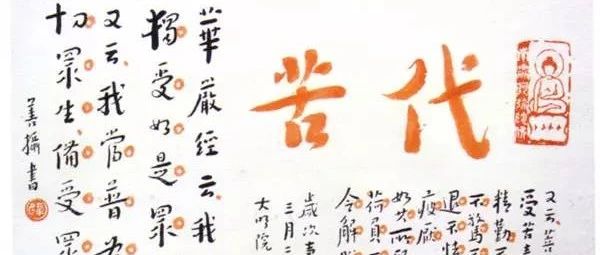 代苦
又云菩
受苦
精勤
不驚
退不怯
疲厭
如其所
荷負一
令解
歲次
三月二
大
華嚴經云我
獨受如是眾
又云我當普為
切眾生備受眾
善攝書